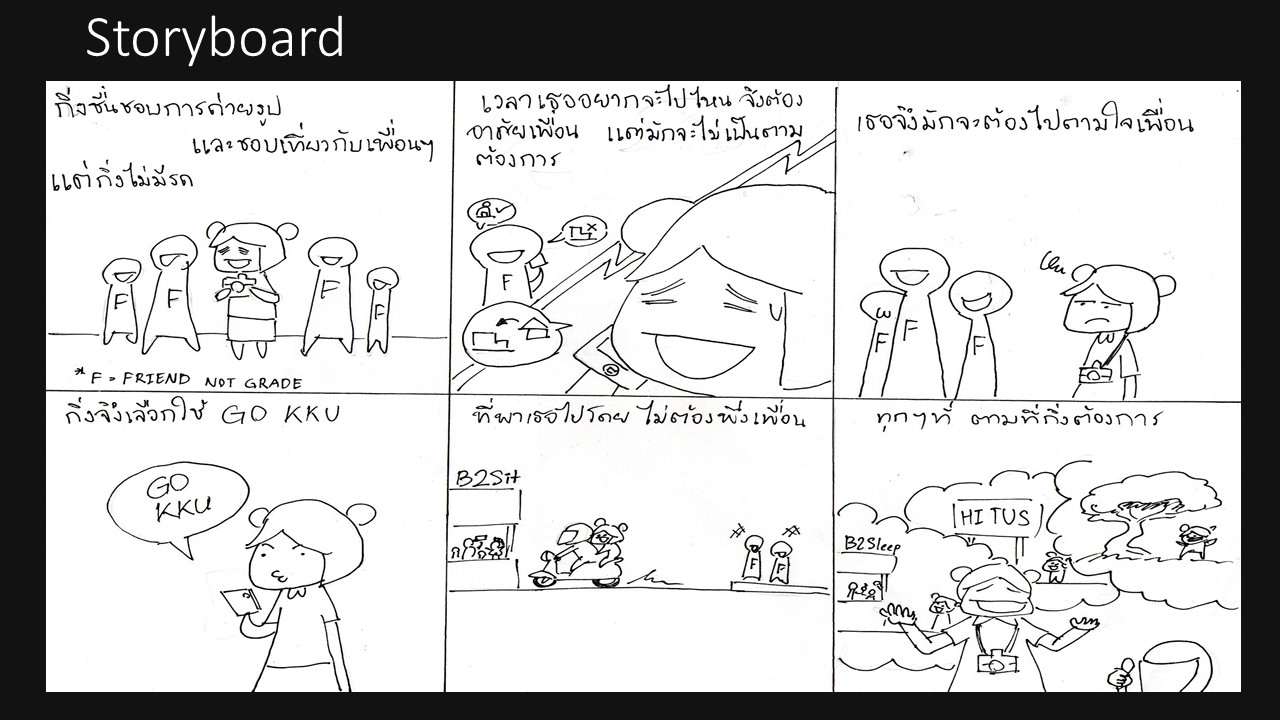 Storyboard
กิ่งชื่นชอบการถ่ายรูป
และชอบเที่ยวกับเพื่อนๆ
แต่กิ่งไม่มีรถ
F
F
F
F
*F = FRIEND NOT GRADE
เวลาเธออยากจะไปไหน จึงต้อง
อาศัยเพื่อน แต่มักจะไม่เป็นตาม
ต้องการ
F
เธอจึงมักจะต้องไปตามใจเพื่อน
F
F
F
กิ่งจึงเลือกใช้ GO KKU
GO
KKU
ที่พาเธอไปโดย ไม่ต้องพึ่งเพื่อน
B2Sit
F
F
ทุกๆที่ ตามที่กิ่งต้องการ
HI TUS
B2Sleep